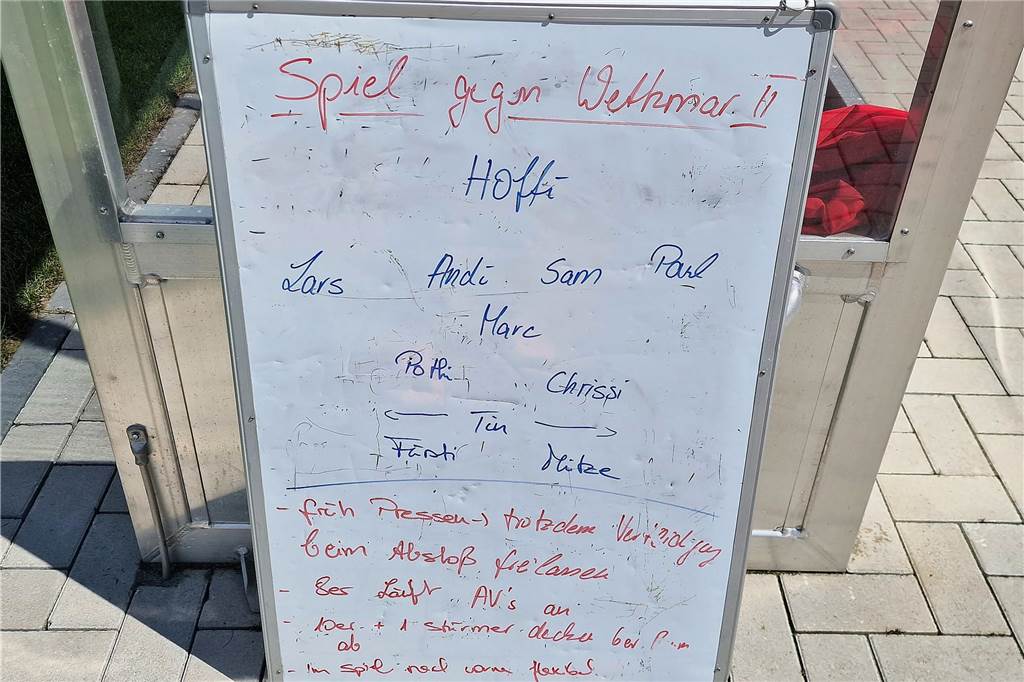 Spiel gegen Wettmar II
Hoffi
Lars Andi Sam Paul
Marc
Pothi Chrissi
← Tin →
Fürsti Mitze
- früh Pressen → trotzdem Verteidigung
beim Abstoß freilassen
- 8er Läuft AV's an
- 10er + 1 stürmer decken 6er
ab
- Im spiel nach vorne flexibel